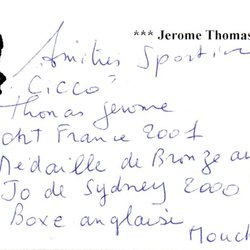 *** Jerome Thomas
Amitiés Sportive
"Cicco"
Thomas Jerome
CHT France 2001
Médaille de Bronze au
Jo de Sydney 2000
Boxe anglaise
Mouch